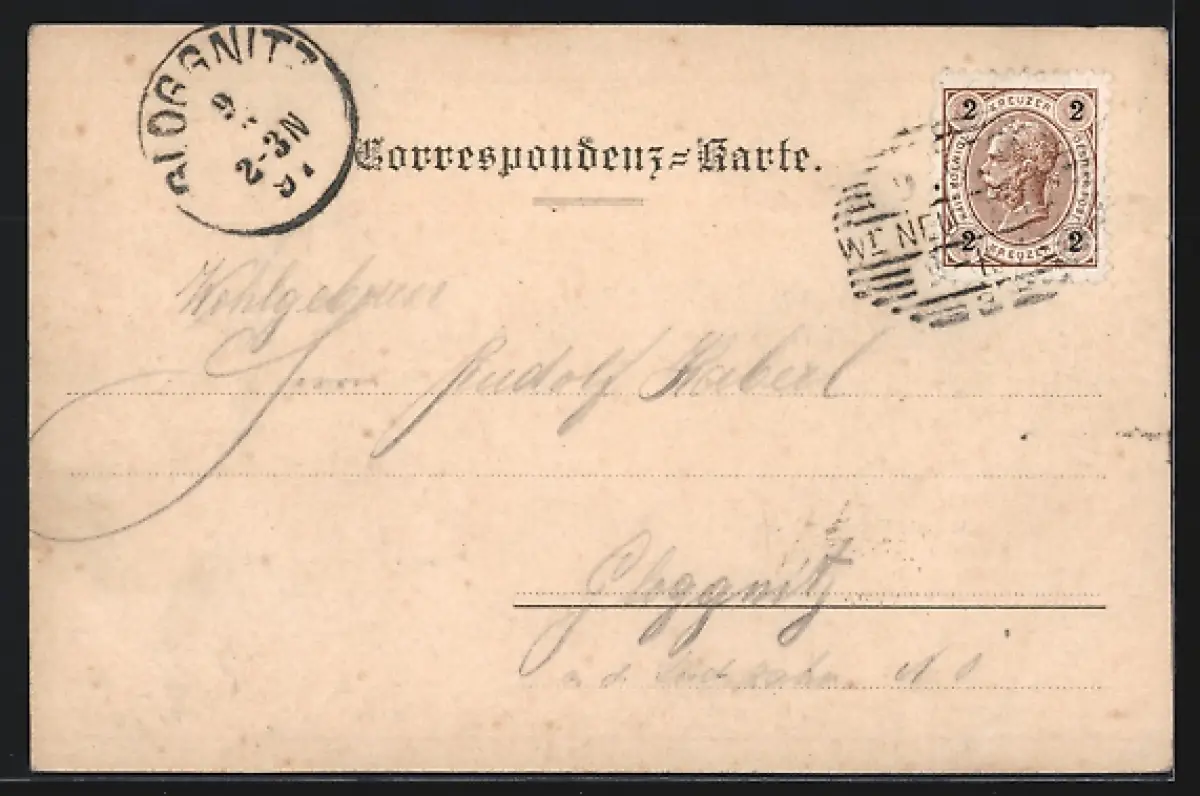 GLOGGNITZ
9
2-3N
97
Correspondenz=Karte.
2 KREUZER 2
2 KREUZER 2
Wr. NEU
Wohlgeboren
Herrn Rudolf Haberl
Gloggnitz
a. d. Südbahn N. Ö